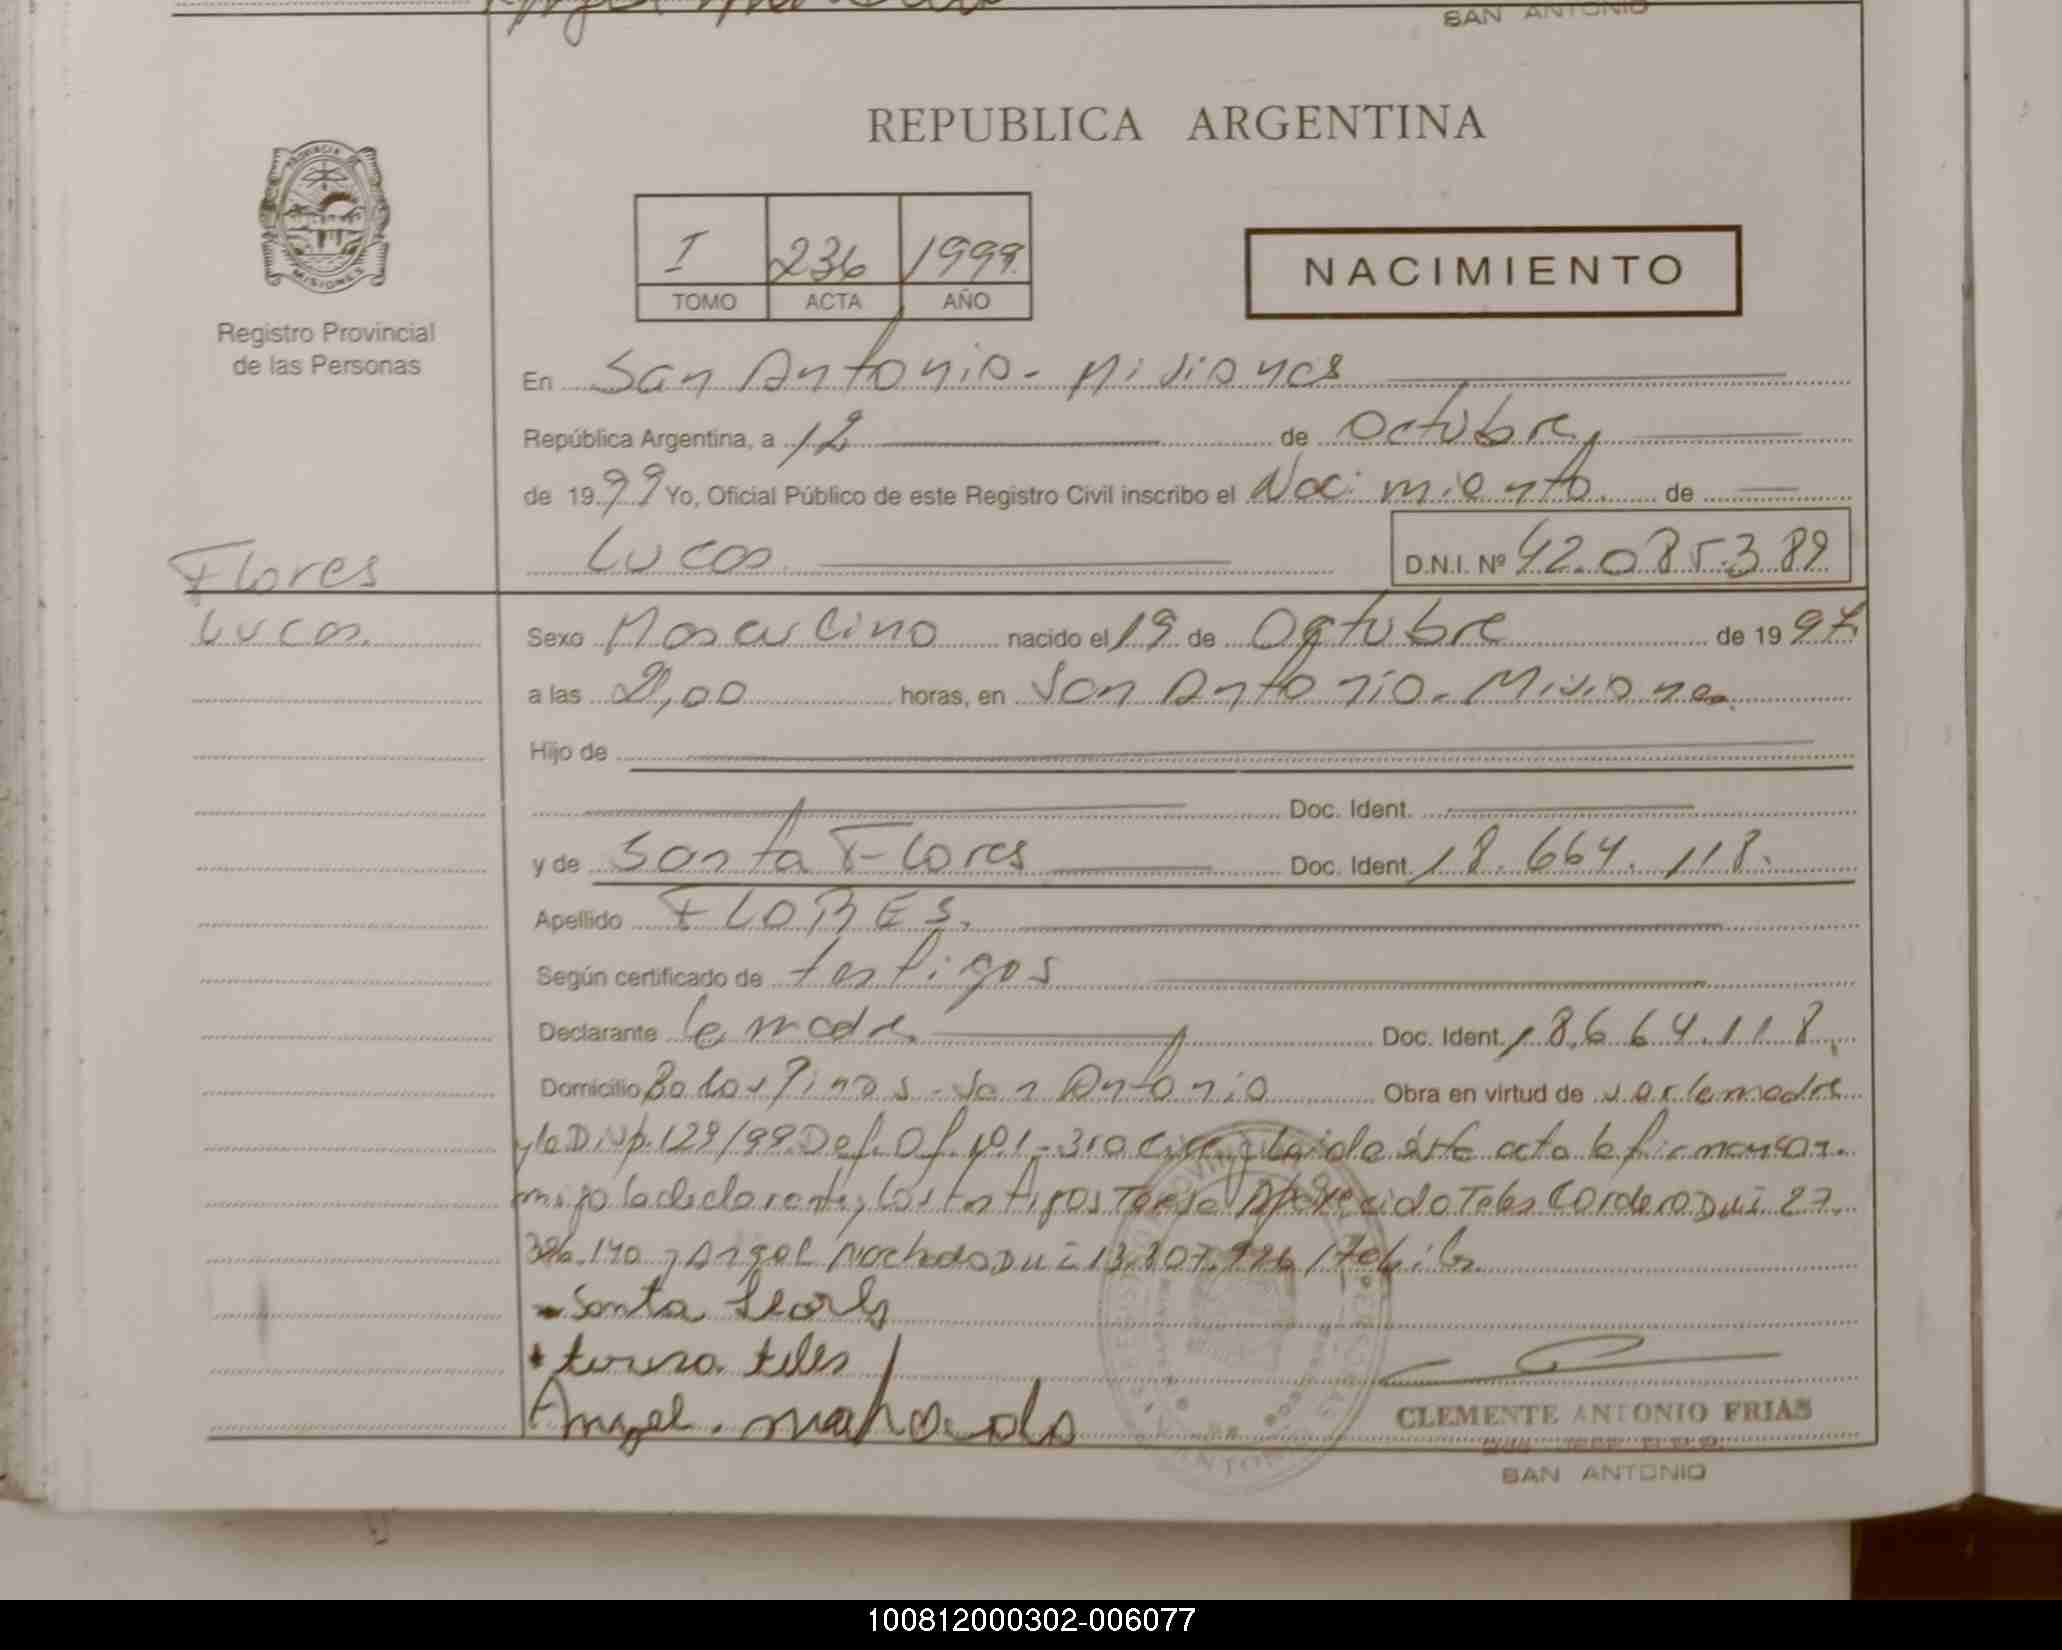 SAN ANTONIO
REPUBLICA ARGENTINA
PROVINCIA DE
MISIONES
Registro Provincial
de las Personas
I 236 1999
TOMO ACTA AÑO
NACIMIENTO
En San Antonio - Misiones
República Argentina, a 12 de Octubre,
de 1999 Yo, Oficial Público de este Registro Civil inscribo el Nacimiento de
Flores
Lucas D.N.I. Nº 42.085.389
Lucas
Sexo Masculino nacido el 19 de Octubre de 1997
a las 21,00 horas, en San Antonio - Misiones
Hijo de
Doc. Ident.
y de Santa Flores Doc. Ident. 18.664.118.
Apellido FLORES.
Según certificado de testigos
Declarante la madre Doc. Ident. 18.664.118.
Domicilio Bo Los Pinos - San Antonio Obra en virtud de la madre
y la Disp. 129/99 Def. Of. Nº1 - 3ra Circ. Leida este acta la firman con-
migo la declarante y los testigos Teresa Aparecida Teles Cordero DNI 27.
140 y Angel Machado DNI 13.807.
Santa
teresa teles
Angel. mahcado
CLEMENTE ANTONIO FRIAS
SAN ANTONIO
100812000302-006077